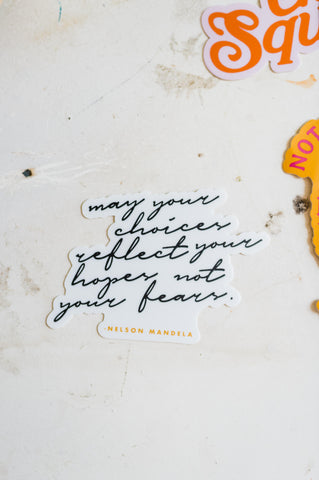 Squ
NOT
may your
choices
reflect your
hopes not
your fears.
NELSON MANDELA